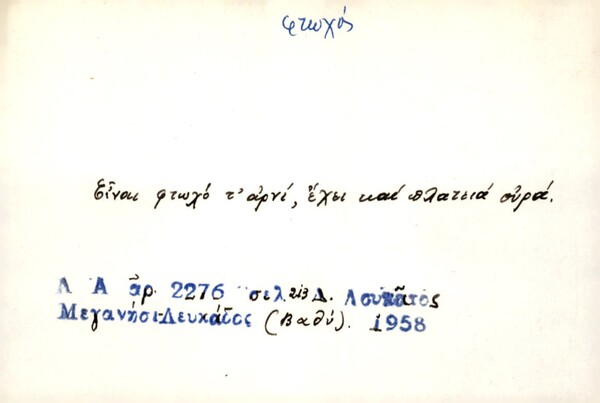 φτωχός
Εἶναι φτωχό τ' ἀρνί, ἔχει καί πλατειά οὐρά.
Λ Α ἀρ. 2276 σελ. 213 Δ. Λουκᾶτος
Μεγανήσι-Λευκάδος (Βαθύ). 1958